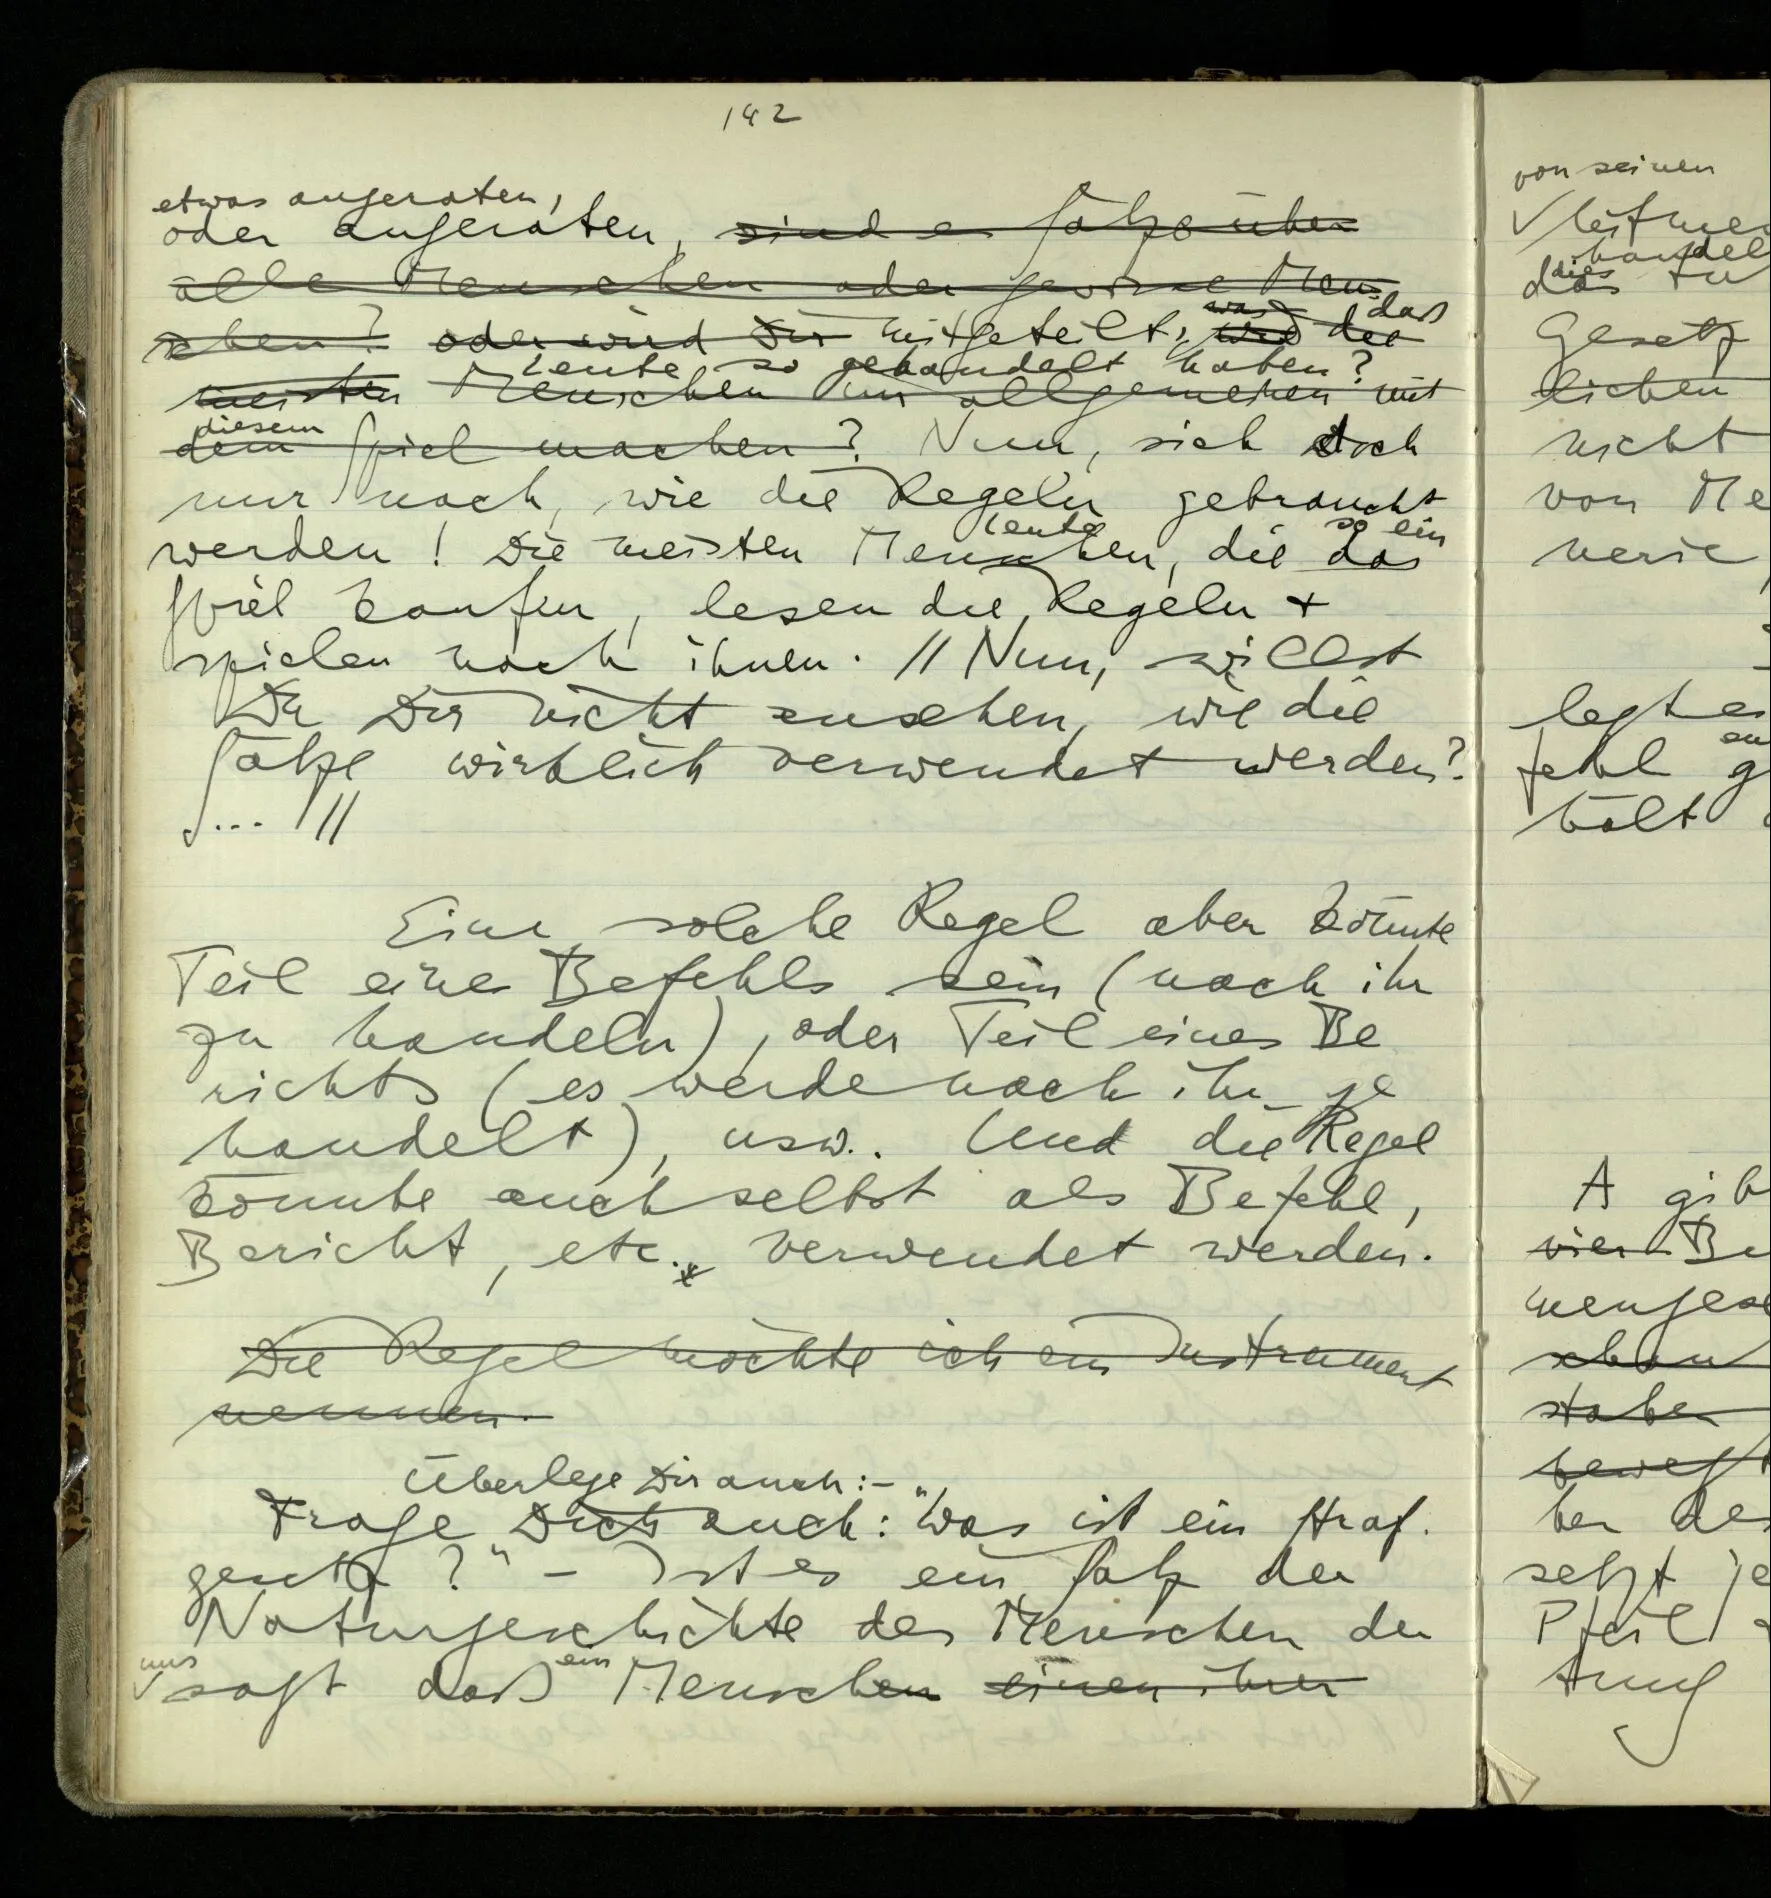 142
etwas angeraten,
oder angeraten, sind es Sätze über
alle Menschen oder gewisse Men-
schen? oder wird Dir mitgeteilt, was wie die daß
Leute so gehandelt haben?
meisten Menschen im allgemeinen mit
diesem
dem Spiel machen? Nun, sieh doch
nur nach, wie die Regeln gebraucht
werden! Die meisten Menschen, die das
Leute so ein
Spiel kaufen, lesen die Regeln +
spielen nach ihnen. // Nun, willst
Du Dir nicht ansehen, wie die
Sätze wirklich verwendet werden?
... //
Eine solche Regel aber könnte
Teil eines Befehls sein (nach ihr
zu handeln), oder Teil eines Be
richts (es werde nach ihr ge
handelt), usw.. Und die Regel
könnte auch selbst als Befehl,
Bericht, etc. verwendet werden.
Die Regel möchte ich ein Instrument
nennen.
Überlege Dir auch: –
Frage Dich auch: "Was ist ein Straf-
gesetz?" – Ist es ein Satz der
Naturgeschichte des Menschen der
uns ein
sagt daß Menschen einen ihrer
von seinen
handel
dies
das
Gesetz
lichen
nicht
von Me
legt es
fehl g
hält
A gib
vier Be
mengese
schau
staben
bewegt
ber des
setzt je
Pfeil
tung